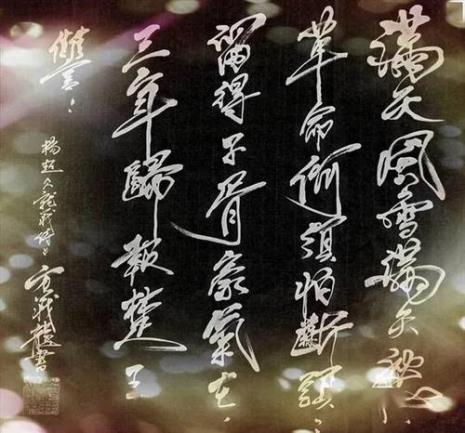 滿天風雪滿天愁
革命何須怕斷頭
留得子胥豪氣在
三年歸報楚王
讎
楊超 詩
書